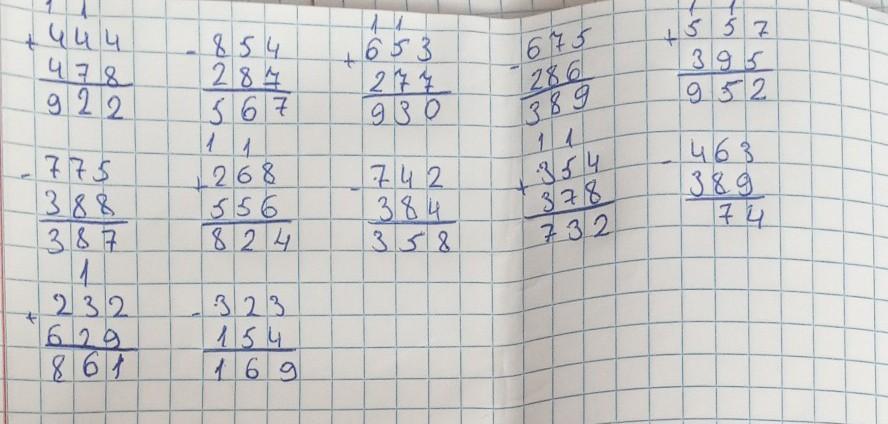 1 1 1 1 1 1
+444 -854 +653 -675 +557
478 287 277 286 395
922 567 930 389 952
1 1 1 1
-775 +268 -742 +354 -463
388 556 384 378 389
387 824 358 732 74
1
+232 -323
629 154
861 169